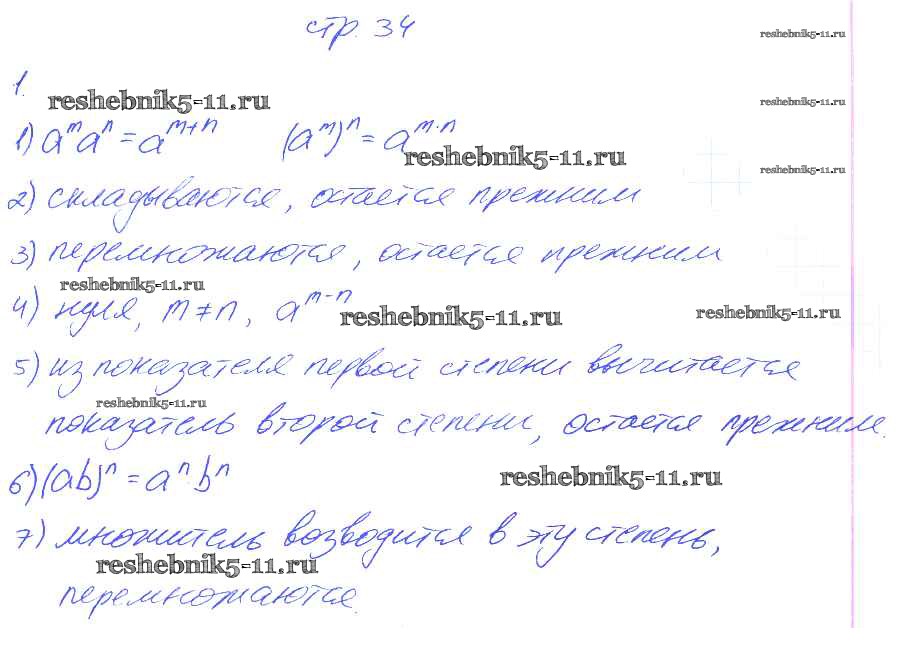 стр. 34
reshebnik5-11.ru
1.
reshebnik5-11.ru
reshebnik5-11.ru
1) aᵐaⁿ = aᵐ⁺ⁿ (aᵐ)ⁿ = aᵐ·ⁿ
reshebnik5-11.ru
reshebnik5-11.ru
2) складываются, остается прежним
3) перемножаются, остается прежним
reshebnik5-11.ru
4) нуля, m≠n, aᵐ⁻ⁿ
reshebnik5-11.ru
reshebnik5-11.ru
5) из показателя первой степени вычитается
reshebnik5-11.ru
показатель второй степени, остается прежним.
6) (ab)ⁿ = aⁿ bⁿ
reshebnik5-11.ru
7) множитель возводится в эту степень,
reshebnik5-11.ru
перемножаются.